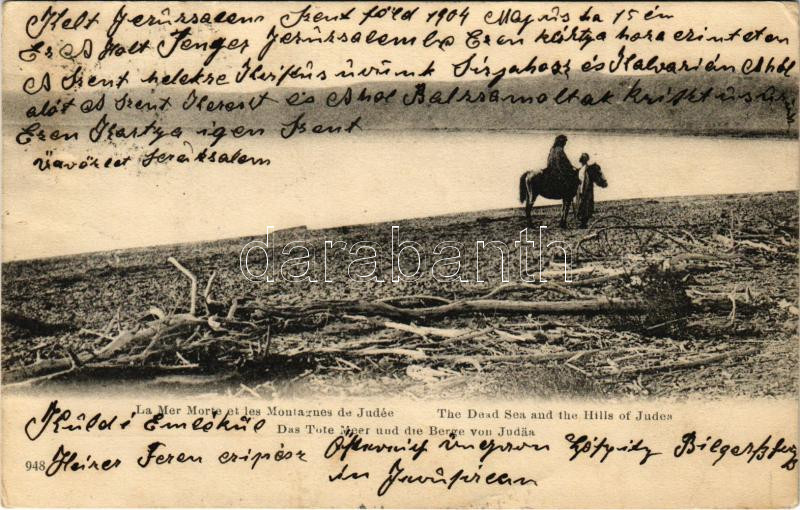 Kelt Jerûrsalem Szent föld 1904 Majûs ha 15 én
Ez A Holt Tenger Jerûrsalembe Ezen kártya hozzá érintetem
A Szent helekre Kristûs ûvûnk Sírjahosz és Kalvarián Ahol
alót A Szent Kereszt és Ahol Balzsamoltak kristus
Ezen Kartya igen Szent
Üdvözlet Jeruksalem
darabanth.com
La Mer Morte et les Montagnes de Judée The Dead Sea and the Hills of Judea
Das Tote Meer und die Berge von Judäa
Küldi Emlékûl
948 Heizer Feren czipész Östereich Ungron Bilgers
in Jerûsalem